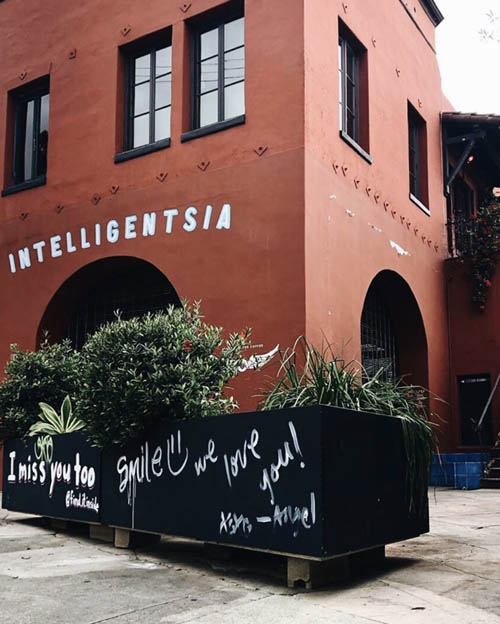 INTELLIGENTSIA
I miss you too
@finditinside
smile
we love you!
XOXO — Angel